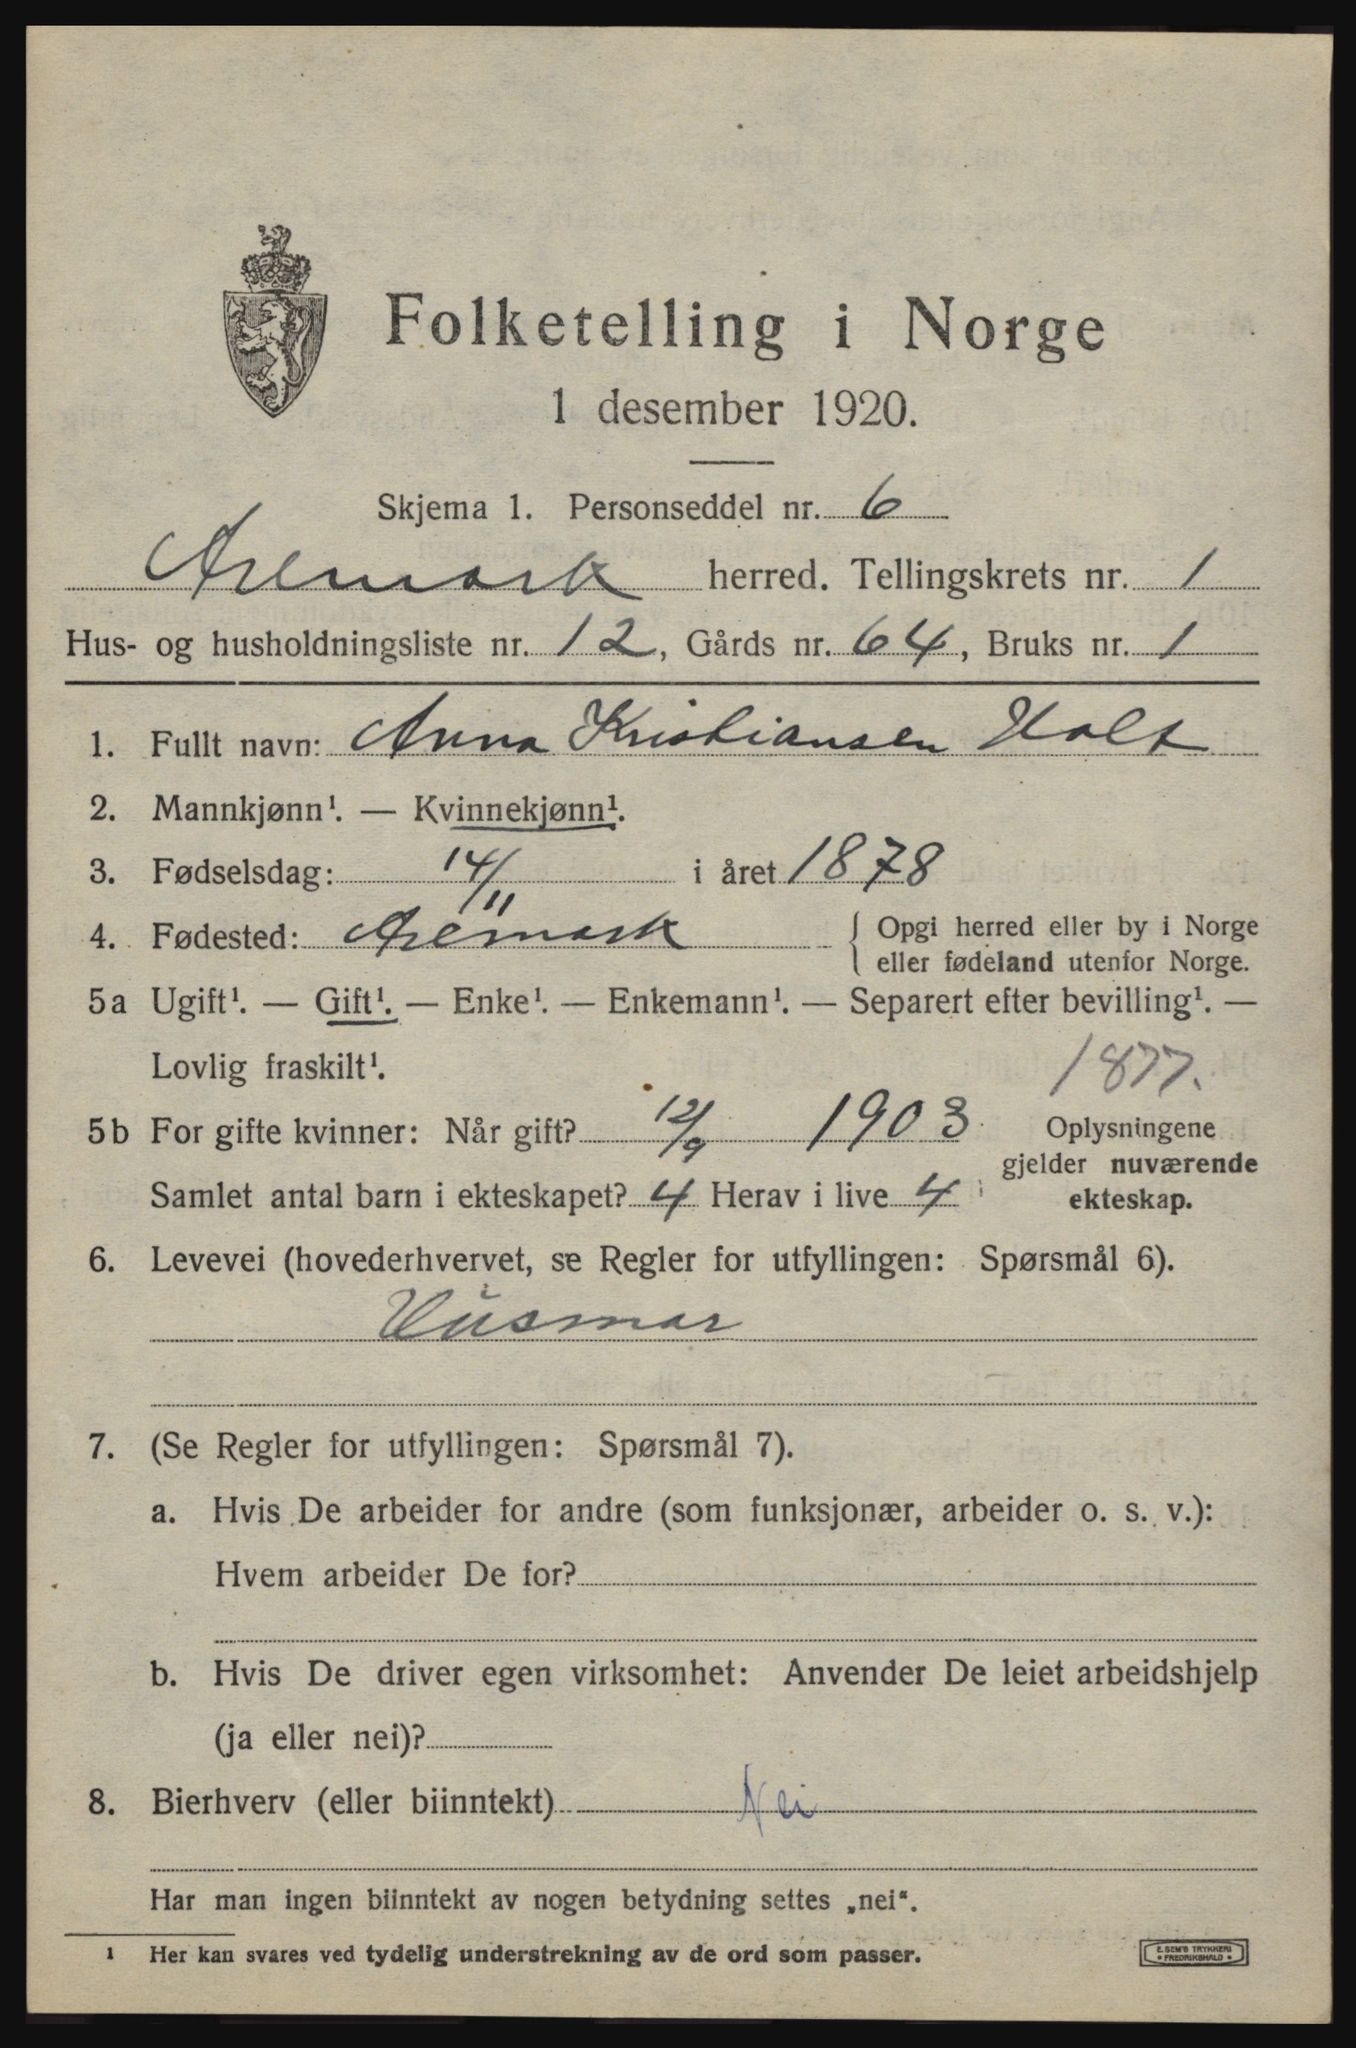 Folketelling i Norge
1 desember 1920.
Skjema 1. Personseddel nr. 6
Aremark herred. Tellingskrets nr. 1
Hus- og husholdningsliste nr. 12, Gårds nr. 64, Bruks nr. 1
1. Fullt navn: Anna Kristiansen Holt
2. Mannkjønn¹. — Kvinnekjønn¹.
3. Fødselsdag: 14/11 i året 1878
4. Fødested: Aremark { Opgi herred eller by i Norge
eller fødeland utenfor Norge.
5a Ugift¹. — Gift¹. — Enke¹. — Enkemann¹. — Separert efter bevilling¹. —
Lovlig fraskilt¹.
1877.
5b For gifte kvinner: Når gift? 12/9 1903
Samlet antal barn i ekteskapet? 4 Herav i live 4
Oplysningene
gjelder nuværende
ekteskap.
6. Levevei (hovederhvervet, se Regler for utfyllingen: Spørsmål 6).
Husmor
7. (Se Regler for utfyllingen: Spørsmål 7).
a. Hvis De arbeider for andre (som funksjonær, arbeider o. s. v.):
Hvem arbeider De for?
b. Hvis De driver egen virksomhet: Anvender De leiet arbeidshjelp
(ja eller nei)?
8. Bierhverv (eller biinntekt) Nei
Har man ingen biinntekt av nogen betydning settes „nei“.
¹ Her kan svares ved tydelig understrekning av de ord som passer.
E. SEM'S TRYKKERI
• FREDRIKSHALD •